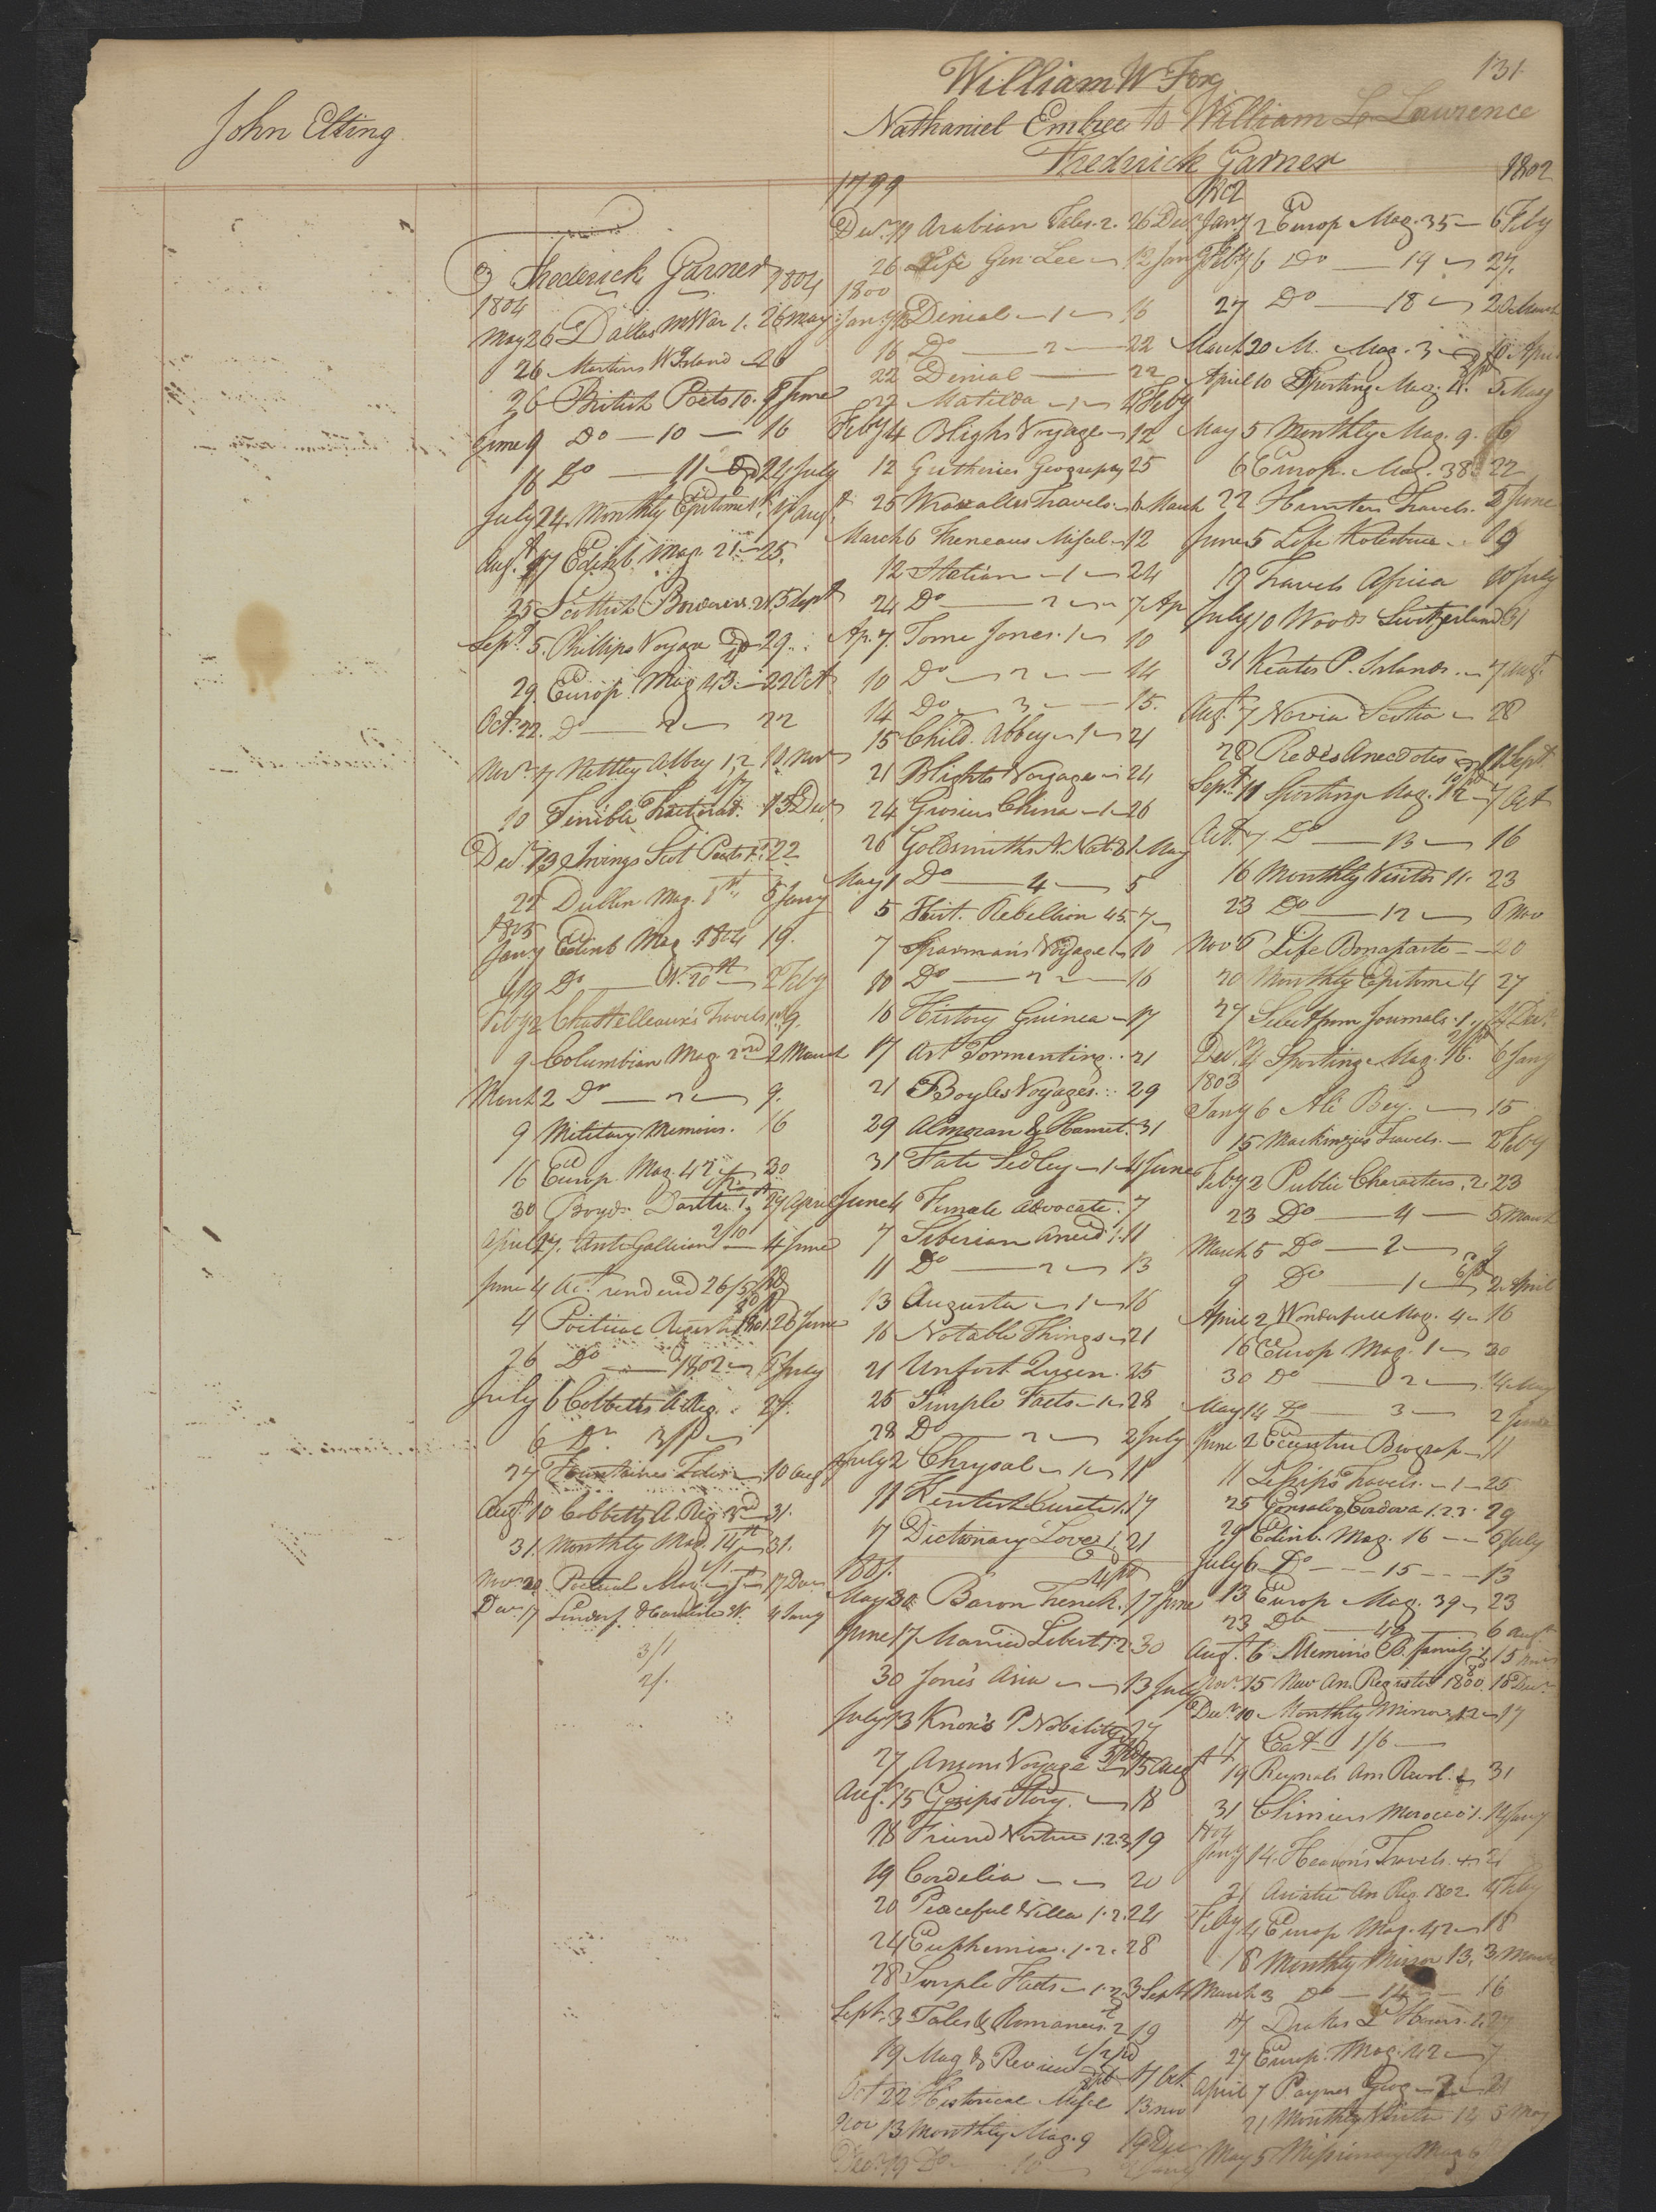 131
John Elting
William W Fox
Nathaniel Embree to William L Lawrence
Frederick Garner
Frederick Garner 1804
1804
May 26 Dallas M War 1. 26 May
26 Martins W Island 26
26 British Poets 10. 9 June
June 9 Do — 10 — 16
16 Do — 11 — 24 July
July 24 Monthly Epitome 1st 17 Augt
Augt. 17 Edinb. Mag. 21 — 25.
25 Scottish Borderers 2 5 Sept
Sept. 5. Phillips Voyage 29
29 Europ. Mag 43 — 22 Oct
Oct. 22. Do — 22
Novr 7 Nettley Abbey 1,2 10 Nov
10 Terrible Tractorat. 13 Decr
Decr. 13 Irvings Scot Poets 1st 22
22 Dublin Mag. 1st 5 Jany
1805
Jany Edinb Mag 1804 19.
19 Do — N. 20 — 2 Feby
Feby 2 Chattelleaux's Travels 9.
9 Columbian Mag 2nd 2 March
March 2 Do — 9.
9 Military Memoirs. 16
16 Europ. Mag. 42 — 30
30 Boyds Danthe 1st 27 April
April 27. Anti Gallican 4 June
June 4 Act. rendered 26/5 pd
4 Poetical Register 1801. 26 June
26 Do — 1802 — 6 July
July 6 Cobbetts A Reg. 27.
6 Do 3
27 Fountaines Tales — 10 Aug
Augt 10 Cobbetts A. Reg 3rd 31.
31. Monthly Mag. 14th 31.
Novr 20 Poetical Mag. 1st 17 Decr
Decr 17 4 Jany
3/1
2/.
1799
Decr. 19 Arabian Tales. 2. 26 Decr
26 Life Gen. Lee — 12 Jany
1800
Jany 12 Denial — 1 — 16
16 Do — 2 — 22
22 Denial — 22
22 Matilda — 1 — 4 Feby
Feby 4 Blighs Voyage — 12
12 Gutheries Geography 25
25 Wraxalls Travels — 6 March
March 6 Theneaus Miscel — 12
12 Italian — 1 — 24
24 Do — 2 — 7 Ap
Ap. 7. Tome Jones. 1 — 10
10 Do — 2 — 14
14 Do — 3 — 15.
15 Child. Abbey — 1 — 21
21 Blights Voyage — 24
24 Grosiers China — 1 — 26
26 Goldsmiths A. Nat. 3 1. May
May 1 Do — 4 — 5
5 Hist. Rebellion 45. 7
7 Sparman's Voyage 1 — 10
10 Do — 2 — 16
16 History Guinea — 17
17 Art Tormenting. 21
21 Boyles Voyages 29
29 Almoran & Hamet. 31
31 Fate Sedley — 1 — 4 June
June 4 Female Advocate. 7
7 Siberian Anecd. 1. 11
11 Do — 2 — 13
13 Augusta — 1 — 16
16 Notable Things — 21
21 Unfort Queen. 25
25 Simple Facts — 1 — 28
28 Do — 2 — 2 July
July 2 Chrysal — 1 — 11
11 Kentish Curate 1. 17
17 Dictionary Love 1. 21
1801.
May 30 Baron Trenck. 17 June
June 17 Married Libert. 1.2. 30
30 Jones Asia — 13 July
July 13 Knox's P Nobility 27
27 Ansons Voyage — 15 Aug
Augt. 15 Gosips Story. — 18
18 Friend Virtue 1.2.3 19
19 Cordelia — 20
20 Peaceful Villa 1.2. 24
24 Euphemia. 1.2. 28
28 Simple Facts — 1.2. 3 Sept
Sept. 3 Tales & Romances. 2 19
19 Mag & Review 17 Oct
Oct 22 Historical Miscl 13 Nov
Nov 13 Monthly Mag. 9 19 Dec
Decr. 19 Do — 10 — Jany
1802
1802
Jany 2 Europ Mag. 35 — 6 Feby
Feby 6 Do — 19 — 27.
27 Do — 18 — 20 March
March 20 M. Mag. 3 — 10 Apri
April 10 Sporting Mag. 11. 5 May
May 5 Monthly Mag. 9. 6
6 Europ. Mag. 38. 22
22 Hunters Travels. 5 June
June 5 Life Kotzebue 19
19 Travels Africa 10 July
July 10 Woods Switzerland 31
31 Keates P. Islands. — 7 Augt
Augt. 7 Novia Scotia — 28
28 Redes Anecdotes 11 Sept
Sept. 11 Sporting Mag. 12 — 7 Oct
Oct. 7 Do — 13 — 16
16 Monthly Visitor 11. 23
23 Do — 12 — 6 Nov
Novr 6 Life Bonaparte — 20
20 Monthly Epitome 4 27
27 Select from Journals. 1. 4 Decr.
Decr. 4 Sporting Mag. 16. 6 Jany
1803
Jany 6 Ali Bey. — 15
15 Mackinzies Travels. — 2 Feby
Feby 2 Public Characters. 2. 23
23 Do — 4 — 5 March
March 5 Do — 2 — 9
9 Do — 1 — 2 April
April 2 Wonderfull Mag. 4 — 16
16 Europ Mag. 1 — 30
30 Do — 2 — 14 May
May 14 Do — 3 — 2 June
June 2 Eccentric Biograp — 11
11 Travels. — 1 — 25
25 Gonsalvo Cordova 1.2.3. 29
29 Edinb. Mag. 16 — 6 July
July 6 Do — 15 — 13
13 Europ Mag. 39 — 23
23 Do — 6 Augt
Augt. 6 Memoirs B. Family. 1 15 Nov
Novr. 15 New An. Register 1800. 10 Decr.
Decr. 10 Monthly Mirror 12 — 17
17 Cat. 1/6 —
19 Raynals Am Revol. 31
31 Chiniers Morocco 1. 14 Jany
1804
Jany 14. Hearon's Travels. 21
21 Asiatic An Reg. 1802. 4 Feby
Feby 4 Europ Mag. 42 — 18
18 Monthly Mirror 13. 3 March
March 3 Do — 14 — 16
17 Drakes L Hours. 1. 27
27 Europ. Mag. 42 — 7
April 7 Paynes Geog — 2 — 21
21 Monthly Visitor 14 5 May
May 5 Missionary Mag 6